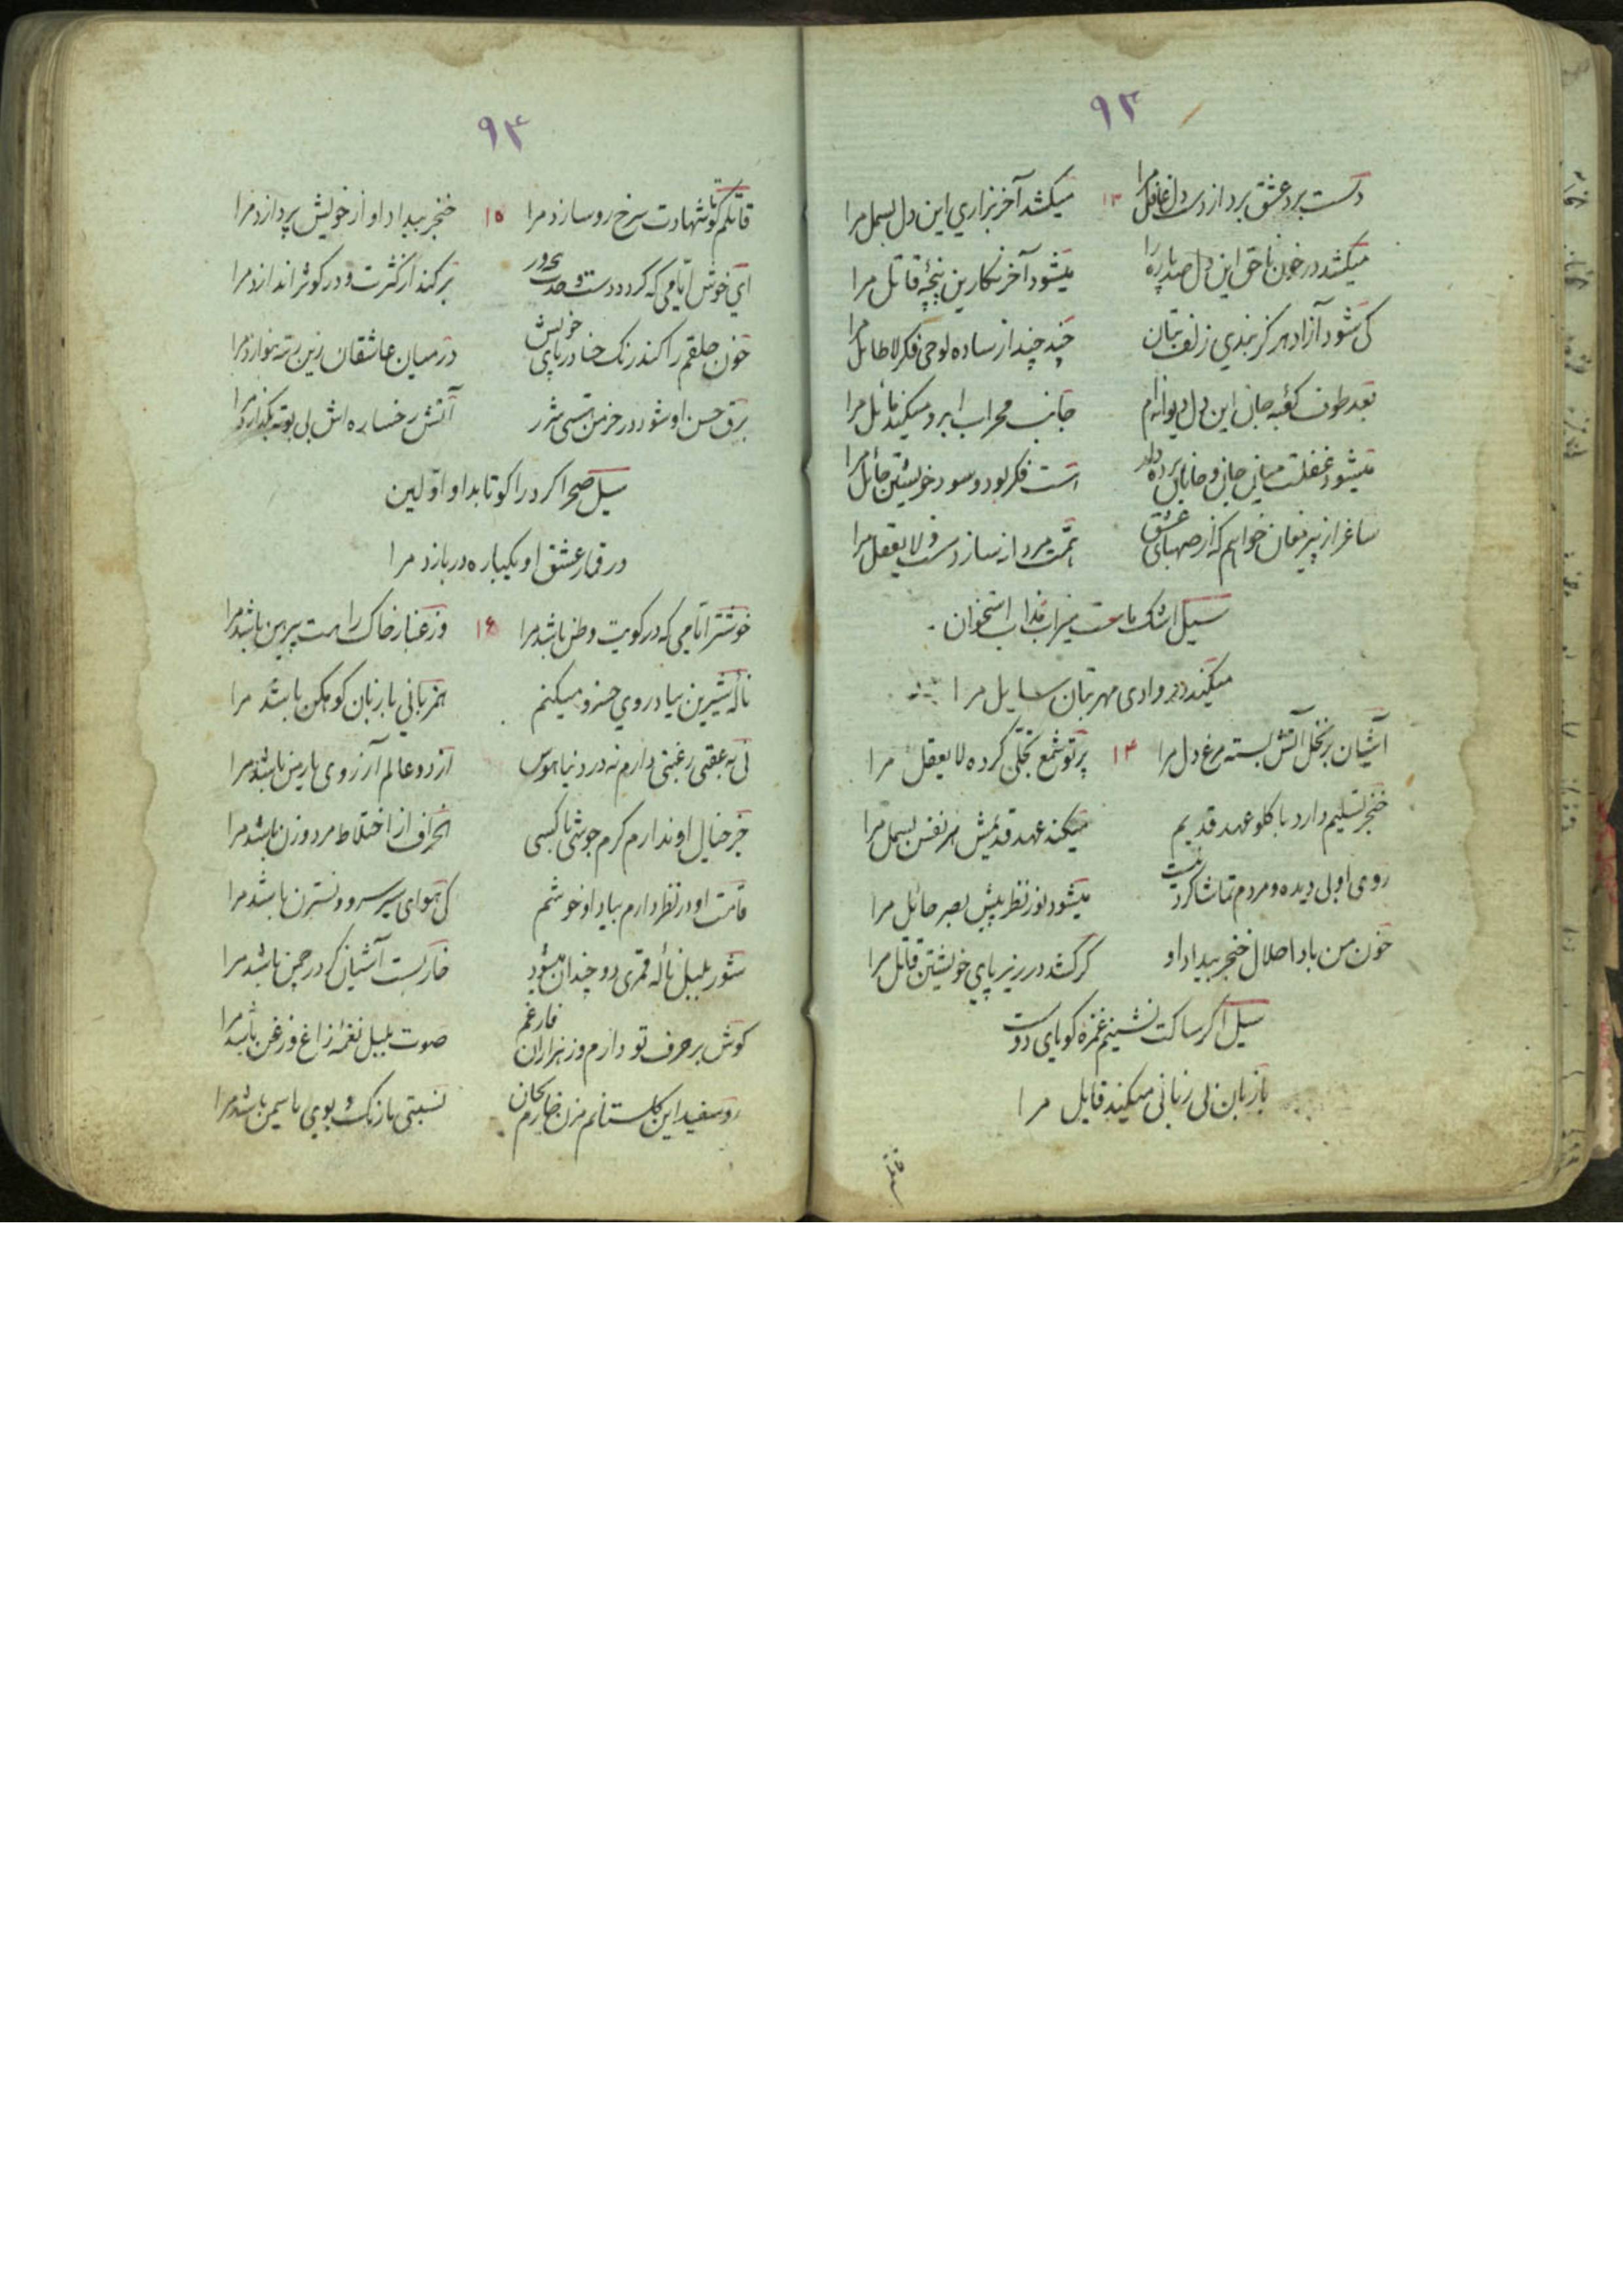 ٩٣
دست برد عشق برد از دست دل غافل مرا ١٣ میکشد آخر بزاری این دل بسمل مرا
میکشد در خون ناحق این دل صد پاره را میشود آخر نکارین پنجهٔ قاتل مرا
کی شود آزاد هرکز بندی زلف بتان چند چند از ساده لوحی فکر لا طائل مرا
بعد طوف کعبه جانی این دل دیوانه ام جانب محراب ابرو میکند مائل مرا
میشود غفلت میان جان و جانان پرده دار است فکر بود و سود خویشتن حائل مرا
ساغر از پیر مغان خواهم که از صهبای عشق همت مردانه سازد مست و لا یعقل مرا
سیل اشک ماست میزاب استخوان
میکند در وادی مهر بتان سایل مرا
آشیان بر نخل آتش بسته مرغ دل مرا ١٤ پرتو شمع تجلی کرده لا یعقل مرا
خنجر تسلیم دارد با کلو عهد قدیم میکند عهد قدیمش هر نفس بسمل مرا
روی او بی دیده و مردم تماشا کردنیست میشود نور نظر پیش بصر حائل مرا
خون من بادا حلال خنجر بیداد او کر کشد در زیر پای خویشتن قاتل مرا
سیل اکر ساکت نشینم غمزه کویای دوست
با زبان بی زبانی میکند قایل مرا
قاتلم
٩٤
قاتلم کو تا شهادت سرخ رو سازد مرا ١٥ خنجر بیداد او از خویش پردازد مرا
ای خوش ایامی که کردد دست وحدت برکند از کثرت و در کوثر اندازد مرا
خون حلقم را کند رنک حنا در پای خویش در میان عاشقان زین رتبه بنوازد مرا
برق حسن او شود در خرمن هستی شرر آتش رخساره اش بی بوته بکدازد مرا
سیل صحرا کرد را کو تا بداو اولین
در قمار عشق او یکباره در بازد مرا
خوشتر ایامی که در کویت وطن باشد مرا ١٦ وز غبار خاک راهت پیرهن باشد مرا
نالهٔ شیرین بیاد روی خسرو میکنم همزبانی با زبان کوهکن باشد مرا
نی به عقبی رغبتی دارم نه در دنیا هوس از دو عالم آرزوی یار من باشد مرا
جز خیال او ندارم کرم جوشی با کسی انحراف از اختلاط مرد و زن باشد مرا
قامت او در نظر دارم بیاد او خوشم کی هوای سیر سرو و نسترن باشد مرا
شور بلبل نالهٔ قمری دو چندان میشود خار بست آشیان کر در چمن باشد مرا
کوش بر حرف تو دارم وز هزاران فارغم صوت بلبل نغمهٔ زاغ و زغن باشد مرا
رو سفید این کلستانم نسبتی با رنک و بوی یاسمن باشد مرا